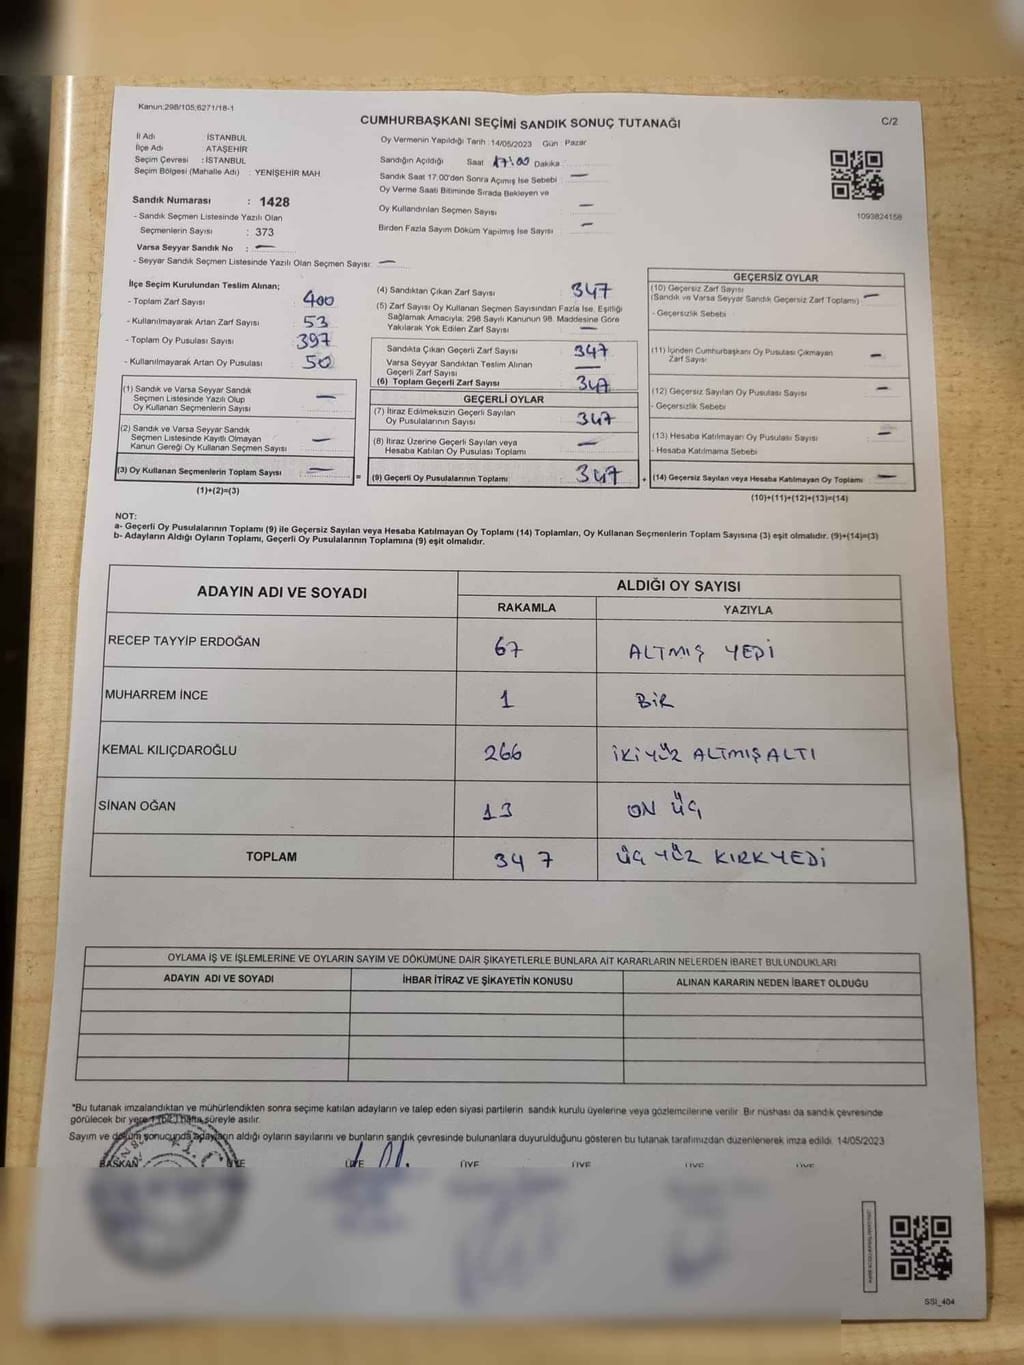 Kanun:298/105;6271/18-1
CUMHURBAŞKANI SEÇİMİ SANDIK SONUÇ TUTANAĞI
C/2
İl Adı İSTANBUL
İlçe Adı ATAŞEHİR
Seçim Çevresi : İSTANBUL
Seçim Bölgesi (Mahalle Adı) : YENİŞEHİR MAH
Sandık Numarası : 1428
- Sandık Seçmen Listesinde Yazılı Olan
Seçmenlerin Sayısı : 373
Varsa Seyyar Sandık No : —
- Seyyar Sandık Seçmen Listesinde Yazılı Olan Seçmen Sayısı: —
Oy Vermenin Yapıldığı Tarih :14/05/2023 Gün : Pazar
Sandığın Açıldığı Saat 17:00 Dakika
Sandık Saat 17.00'den Sonra Açımış İse Sebebi —
Oy Verme Saati Bitiminde Sırada Bekleyen ve
Oy Kullandırılan Seçmen Sayısı —
Birden Fazla Sayım Döküm Yapılmış İse Sayısı —
1093824158
İlçe Seçim Kurulundan Teslim Alınan;
- Toplam Zarf Sayısı 400
- Kullanılmayarak Artan Zarf Sayısı 53
- Toplam Oy Pusulası Sayısı 397
- Kullanılmayarak Artan Oy Pusulası 50
(1) Sandık ve Varsa Seyyar Sandık
Seçmen Listesinde Yazılı Olup
Oy Kullanan Seçmenlerin Sayısı —
(2) Sandık ve Varsa Seyyar Sandık
Seçmen Listesinde Kayıtlı Olmayan
Kanun Gereği Oy Kullanan Seçmen Sayısı —
(3) Oy Kullanan Seçmenlerin Toplam Sayısı —
(1)+(2)=(3)
(4) Sandıktan Çıkan Zarf Sayısı 347
(5) Zarf Sayısı Oy Kullanan Seçmen Sayısından Fazla İse, Eşitliği
Sağlamak Amacıyla, 298 Sayılı Kanunun 98. Maddesine Göre
Yakılarak Yok Edilen Zarf Sayısı —
Sandıkta Çıkan Geçerli Zarf Sayısı 347
Varsa Seyyar Sandıktan Teslim Alınan
Geçerli Zarf Sayısı —
(6) Toplam Geçerli Zarf Sayısı 347
GEÇERLİ OYLAR
(7) İtiraz Edilmeksizin Geçerli Sayılan
Oy Pusulalarının Sayısı 347
(8) İtiraz Üzerine Geçerli Sayılan veya
Hesaba Katılan Oy Pusulası Toplamı —
= (9) Geçerli Oy Pusulalarının Toplamı 347
GEÇERSİZ OYLAR
(10) Geçersiz Zarf Sayısı
(Sandık ve Varsa Seyyar Sandık Geçersiz Zarf Toplamı) —
- Geçersizlik Sebebi
(11) İçinden Cumhurbaşkanı Oy Pusulası Çıkmayan
Zarf Sayısı —
(12) Geçersiz Sayılan Oy Pusulası Sayısı —
- Geçersizlik Sebebi
(13) Hesaba Katılmayan Oy Pusulası Sayısı —
- Hesaba Katılmama Sebebi
+ (14) Geçersiz Sayılan veya Hesaba Katılmayan Oy Toplamı —
(10)+(11)+(12)+(13)=(14)
NOT:
a- Geçerli Oy Pusulalarının Toplamı (9) ile Geçersiz Sayılan veya Hesaba Katılmayan Oy Toplamı (14) Toplamları, Oy Kullanan Seçmenlerin Toplam Sayısına (3) eşit olmalıdır. (9)+(14)=(3)
b- Adayların Aldığı Oyların Toplamı, Geçerli Oy Pusulalarının Toplamına (9) eşit olmalıdır.
ADAYIN ADI VE SOYADI ALDIĞI OY SAYISI
RAKAMLA YAZIYLA
RECEP TAYYİP ERDOĞAN 67 ALTMIŞ YEDİ
MUHARREM İNCE 1 BİR
KEMAL KILIÇDAROĞLU 266 İKİYÜZ ALTMIŞALTI
SİNAN OĞAN 13 ON ÜÇ
TOPLAM 347 ÜÇ YÜZ KIRKYEDİ
OYLAMA İŞ VE İŞLEMLERİNE VE OYLARIN SAYIM VE DÖKÜMÜNE DAİR ŞİKAYETLERLE BUNLARA AİT KARARLARIN NELERDEN İBARET BULUNDUKLARI
ADAYIN ADI VE SOYADI İHBAR İTİRAZ VE ŞİKAYETİN KONUSU ALINAN KARARIN NEDEN İBARET OLDUĞU
*Bu tutanak imzalandıktan ve mühürlendikten sonra seçime katılan adayların ve talep eden siyasi partilerin sandık kurulu üyelerine veya gözlemcilerine verilir. Bir nüshası da sandık çevresinde
görülecek bir yere 1 (bir) hafta süreyle asılır.
Sayım ve döküm sonucunda adayların aldığı oyların sayılarını ve bunların sandık çevresinde bulunanlara duyurulduğunu gösteren bu tutanak tarafımızdan düzenlenerek imza edildi. 14/05/2023
BAŞKAN ÜYE ÜYE ÜYE ÜYE ÜYE ÜYE
SSİ_404